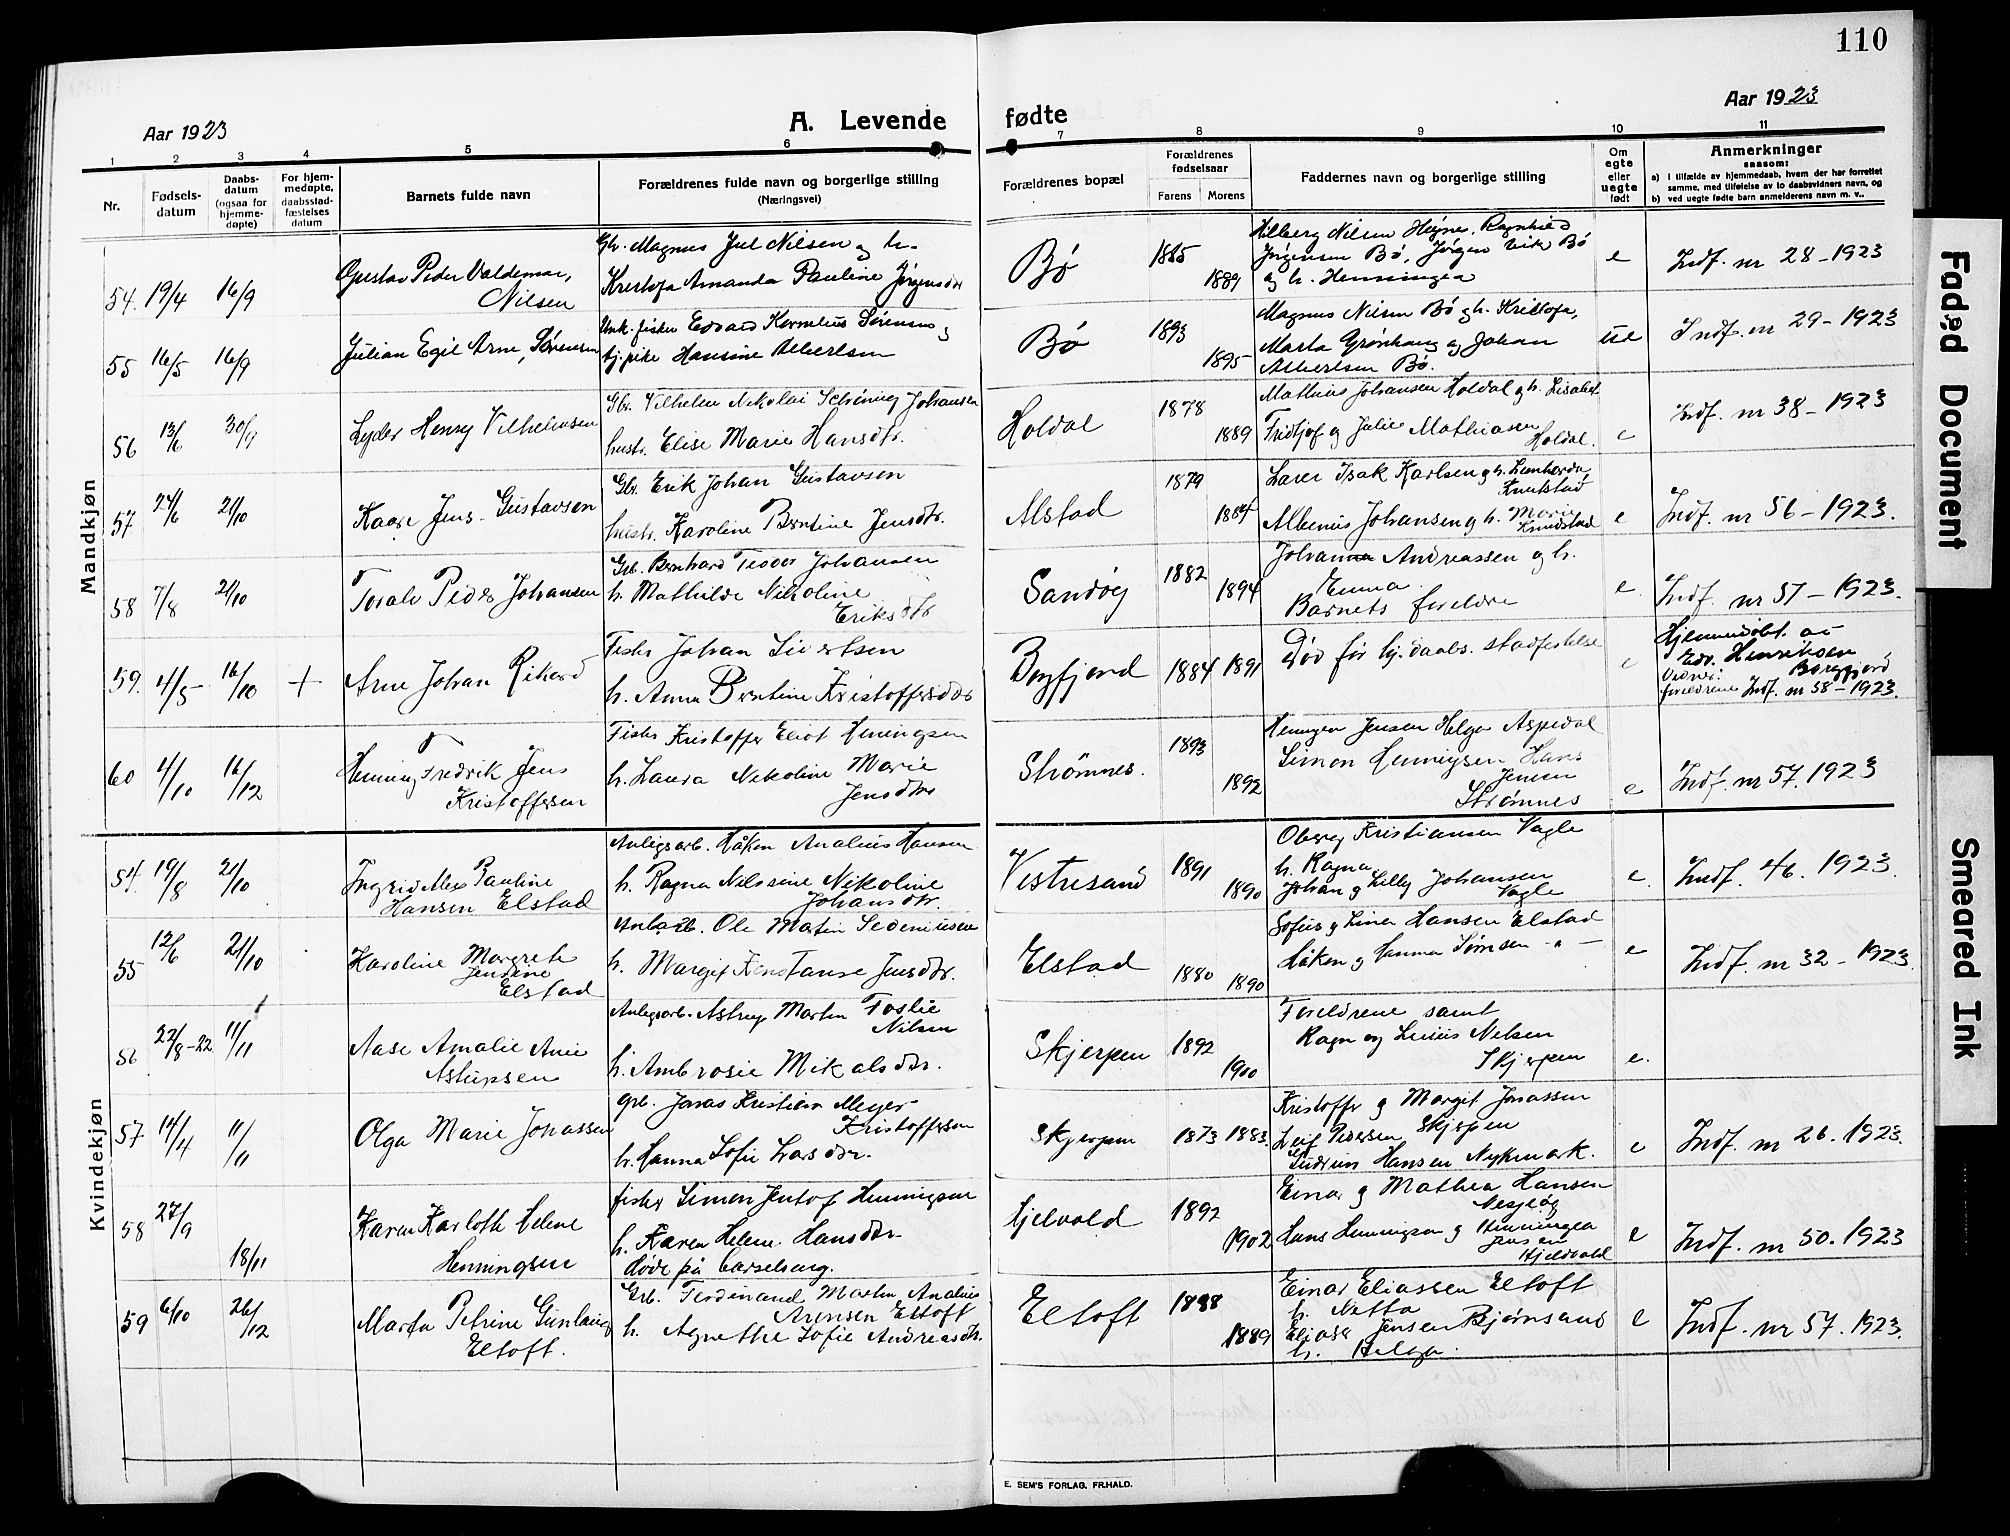 110
Aar 1923
A. Levende fødte
Aar 1923
1 2 3 4 5 6 7 8 9 10 11
Nr.
Fødsels-
datum
Daabs-
datum
(ogsaa for
hjemme-
døpte)
For hjem-
medøpte,
daabsstad-
fæstelses
datum
Barnets fulde navn
Forældrenes fulde navn og borgerlige stilling
(Næringsvei)
Forældrenes bopæl
Forældrenes
fødselsaar
Farens Morens
Faddernes navn og borgerlige stilling
Om
egte
eller
uegte
født
Anmerkninger
saasom:
a) i tilfælde av hjemmedaab, hvem der har forrettet
samme, med tilføielse av to daabsvidners navn, og
b) ved uegte fødte barn anmelderens navn m. v..
Mandkjøn
54. 19/4 16/9
Gustav Peder Valdemar,
Nilsen
Gbr. Magnus Jul Nilsen og h.
Kristofa Amanda Pauline Jørgensdtr
Bø
1885
1889
Hilberg Nilsen Høynes, Ragnhild
Jørgensen Bø, Jørgen Vik Bø
og h. Henningea
e
Indf. nr 28-1923
55 16/5 16/9
Julian Egil Arne, Sørensen
Unk. fisker Edvard Kornelius Sørensen og
tj. pike Hansine Albertsen
Bø
1893
1895
Magnus Nilsen Bø og h. Kristofa,
Marta Grønhaug og Johan
Albertsen Bø.
ue
Indf. nr 29-1923
56 13/6 30/9
Lyder Henry Vilhelmsen
Gbr. Vilhelm Nikolai Schöning Johansen
hustr. Elise Marie Hansdtr.
Holdal
1878
1889
Mathius Johansen Holdal og h. Lisabet
Fridtjof og Julie Mathiasen
Holdal.
e
Indf. nr 38-1923
57. 24/6 21/10
Kaare Jens Gustavsen
Gbr. Erik Johan Gustavsen
hustr. Karoline Berntine Jensdtr.
Alstad
1879
1884
Lærer Isak Karlsen og h. Leonharda
Knutstad
Albenus Johansen og h. Marie
Knudstad
e
Indf. nr 56-1923.
58 7/8 21/10
Toralv Peder Johansen
Grb. Bernhard Teodor Johansen
h. Mathilde Nikoline
Eriksdtr
Sandøy
1882
1894
Johan Andreassen og h.
Emma
Barnets foreldre
e.
Indf. nr 57-1923.
59. 4/5 16/10 +
Arne Johan Rikard
Fisker Johan Sivertsen
h. Anna Berntine Kristoffersdtr
Borgfjord
1884 1891
Død før hj.daabs. stadfestelse
e
Hjemmedøbt av
Edv. Henriksen
Vidner: Borgfjord
foreldrene Indf. nr 58-1923.
60 4/10 16/12
Henning Fredrik Jens
Kristoffersen
Fisker Kristoffer Eliot Heningsen
h. Laura Nikoline Marie
Jensdtr
Strømnes.
1893
1892
Heningea Jensen Helga Aspedal
Simon Henningsen Hans
Jensen
Strømnes
e
Indf. nr 57. 1923
Kvindekjøn
54. 19/8 21/10
Ingrid Pauline
Hansen Elstad
Anlegsarb. Håkon Analius Hansen
h. Ragna Nilssine Nikoline
Johansdtr.
Vestresand
1891
1890
Kristiansen Vagle
h. Ragna
Johan og Lilly Johansen
Vagle
e.
Indf. 46. 1923.
55 12/6 21/10
Karoline Margrete
Jensine
Elstad
Ole Martin Sedeniusen
h. Margit Konstanse Jensdtr.
Elstad
1880
1890
Sofus og Lina Hansen Elstad
Håkon og Hanna Simonsen -"-
e
Indf. nr 32-1923.
56 22/8-22 11/11
Aase Amalie Anie
Astupsen
Anlegsarb. Astrup Martin Toslie
Nilsen
h. Ambrosie Mikalsdtr.
Skjerpen
1892
1900
Foreldrene samt
Ragn og Nilsen
Skjerpen
e.
57 14/4 11/11
Olga Marie Jonassen
Grb. Jonas Kristian Meyer
Kristoffersen
h. Hanna Sofie Larsdtr.
Skjerpen
1873 1883.
Kristoffer og Margit Jonassen
Leif Pedersen Skjerpen
Gudrun Hansen Nykmark.
e
Indf. nr 26. 1923.
58 27/9 18/11
Karen Karlotte Helene
Henningsen
fisker Simon Jentof Henningsen
h. Karen Helene Hansdtr.
døde på barselseng.
Hjelvold
1892
1902
Einar og Mathea Hansen
Nesjeøg
Hans Henningsen og Henningea
Jensen
Hjeldvold
e
Indf. nr 50. 1923
59 6/10 26/12
Marta Petrine Gunlaug
Eltoft.
Grb. Ferdinand Martin Analius
Arensen Eltoft
h. Agnethe Sofie Andreasdtr.
Eltoft
1888
1889
Einar Eliassen Eltoft
h. Natta
Elias Jensen Bjørnsand
h. Helga.
e
Indf. nr 57. 1923.
E. SEM'S FORLAG, FR.HALD.
Faded Document
Smeared Ink